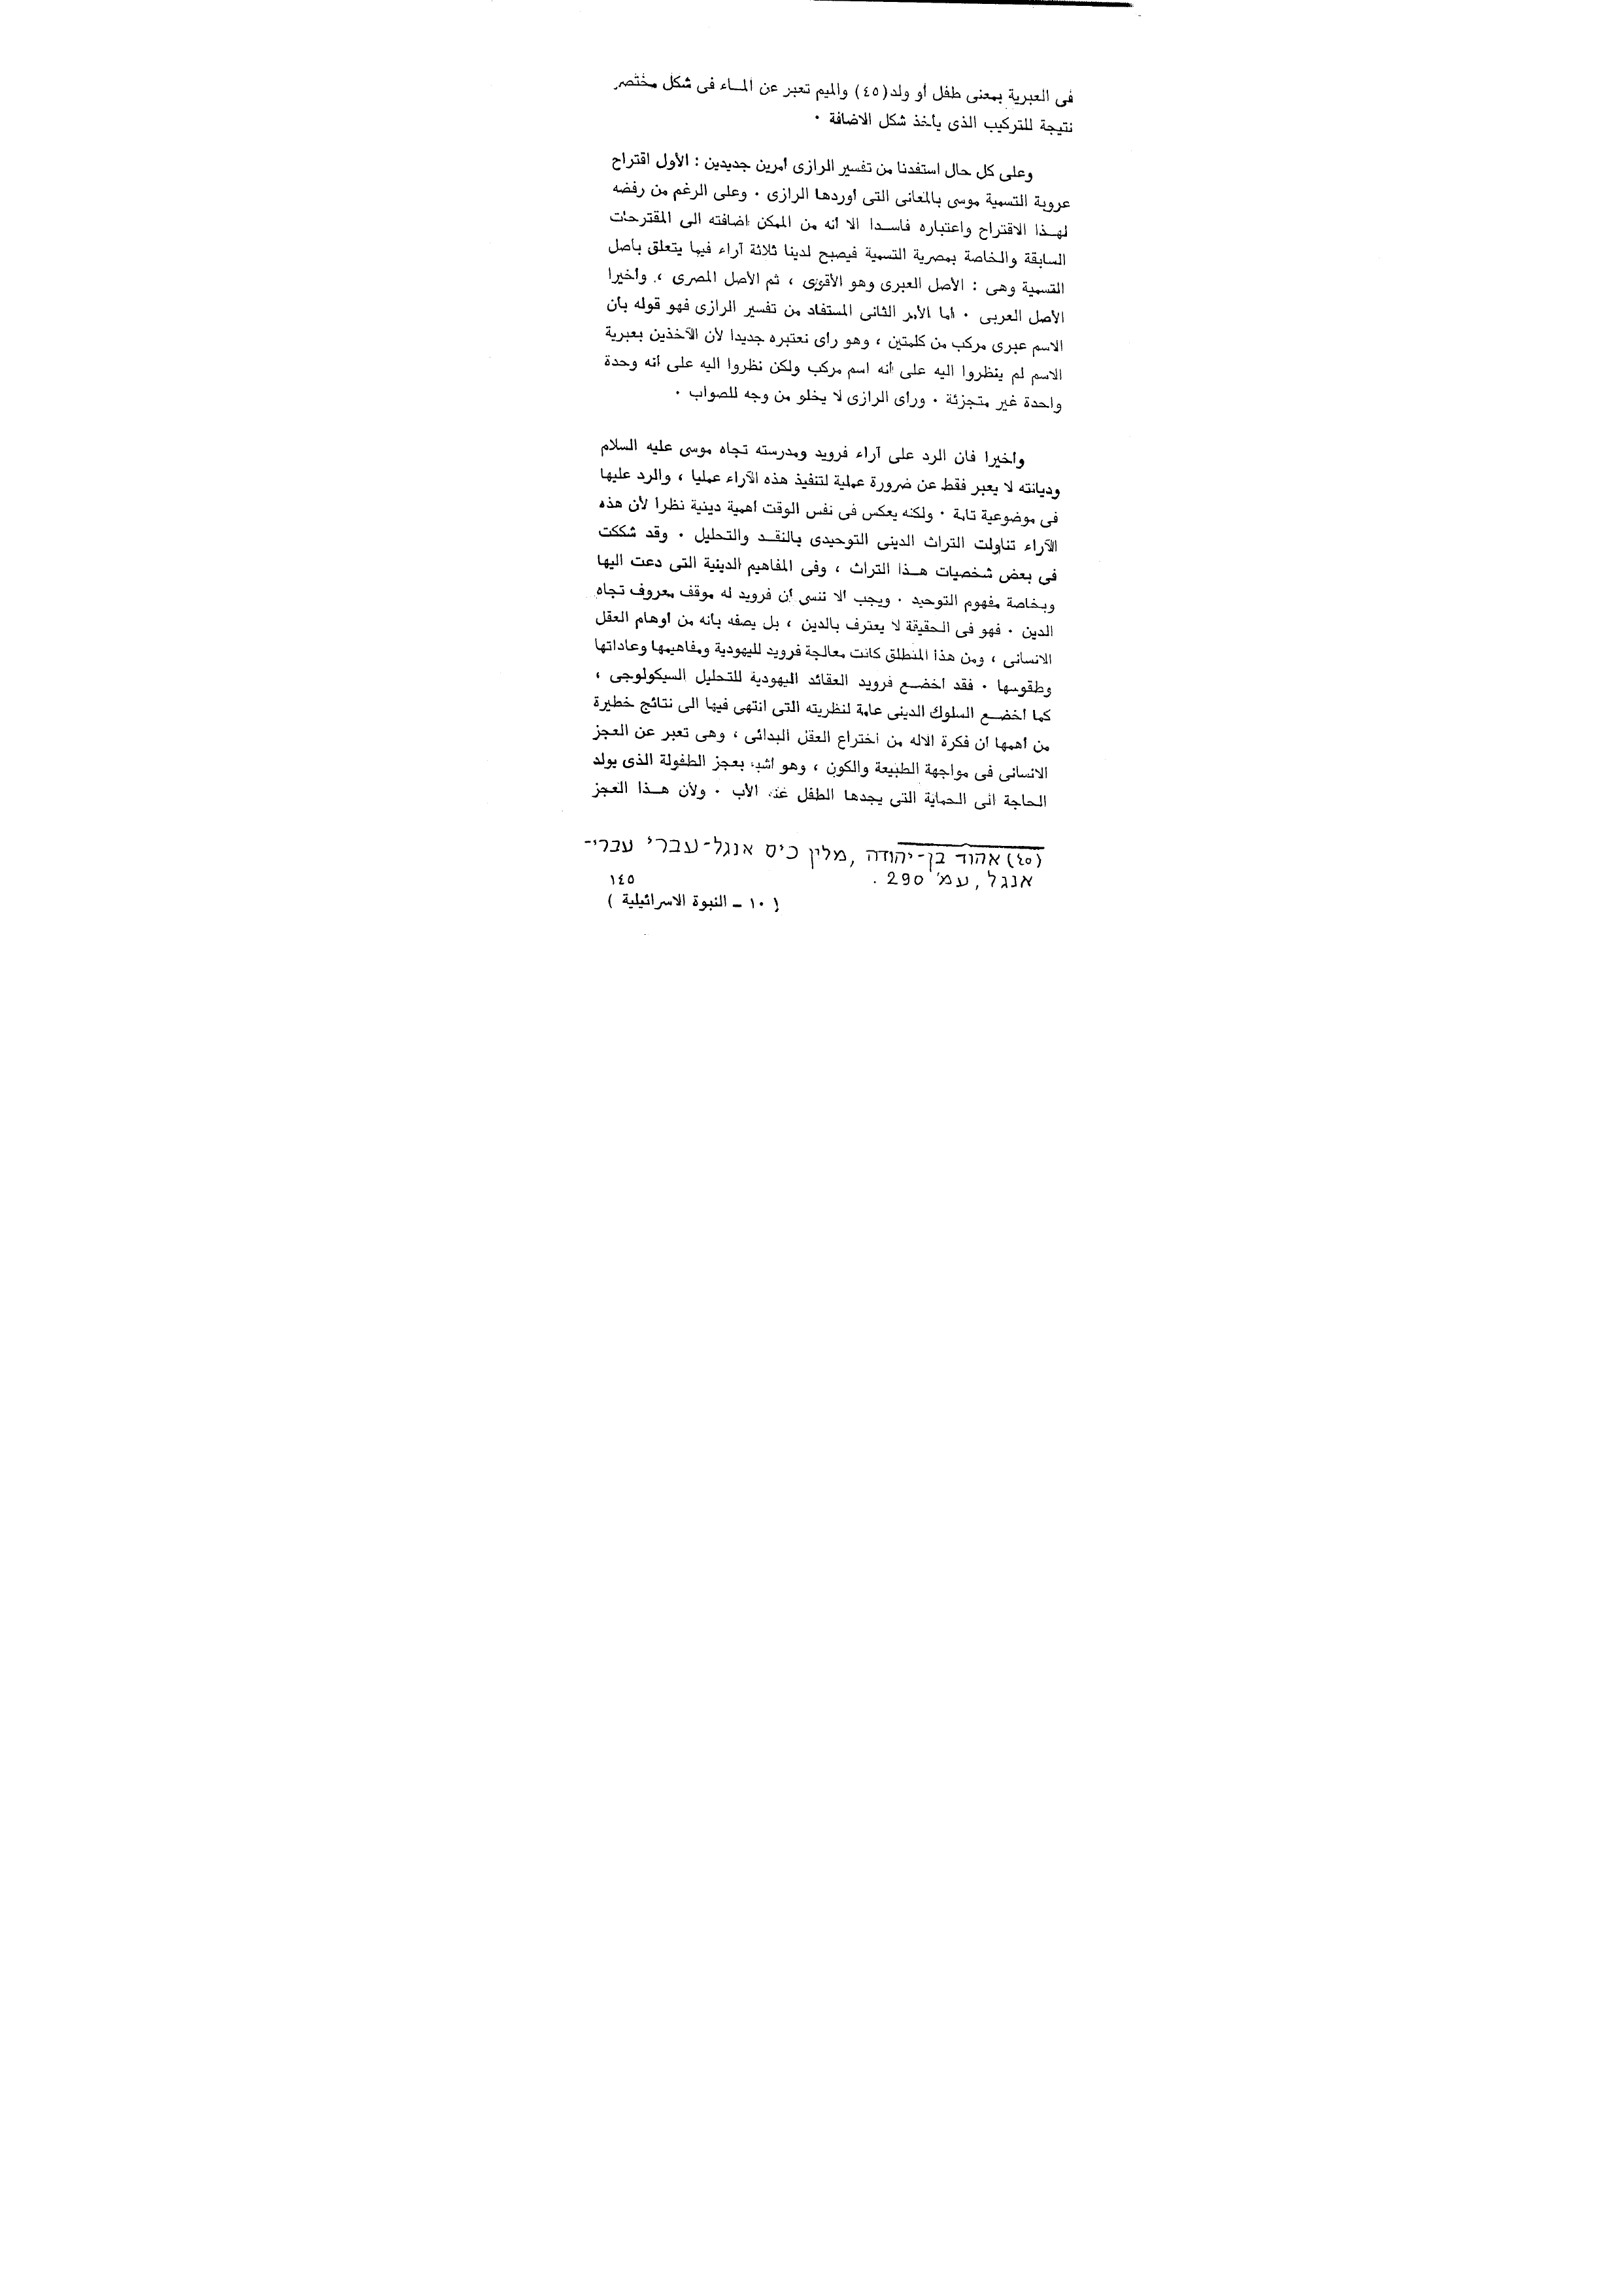 فى العبرية بمعنى طفل أو ولد (٤٥) والميم تعبر عن المـاء فى شكل مختصر
نتيجة للتركيب الذى يأخذ شكل الاضافة ٠
وعلى كل حال استفدنا من تفسير الرازى أمرين جديدين : الأول اقتراح
عروبة التسمية موسى بالمعانى التى أوردها الرازى ٠ وعلى الرغم من رفضه
لهـذا الاقتراح واعتباره فاسـدا الا أنه من الممكن اضافته الى المقترحات
السابقة والخاصة بمصرية التسمية فيصبح لدينا ثلاثة آراء فيما يتعلق بأصل
التسمية وهى : الأصل العبرى وهو الأقوى ، ثم الأصل المصرى ، وأخيرا
الأصل العربى ٠ أما الأمر الثانى المستفاد من تفسير الرازى فهو قوله بأن
الاسم عبرى مركب من كلمتين ، وهو رأى نعتبره جديدا لأن الآخذين بعبرية
الاسم لم ينظروا اليه على أنه اسم مركب ولكن نظروا اليه على أنه وحدة
واحدة غير متجزئة ٠ ورأى الرازى لا يخلو من وجه للصواب ٠
وأخيرا فان الرد على آراء فرويد ومدرسته تجاه موسى عليه السلام
وديانته لا يعبر فقط عن ضرورة عملية لتنفيذ هذه الآراء عمليا ، والرد عليها
فى موضوعية تامة ٠ ولكنه يعكس فى نفس الوقت أهمية دينية نظرا لأن هذه
الآراء تناولت التراث الدينى التوحيدى بالنقـد والتحليل ٠ وقد شككت
فى بعض شخصيات هـذا التراث ، وفى المفاهيم الدينية التى دعت اليها
وبخاصة مفهوم التوحيد ٠ ويجب ألا ننسى أن فرويد له موقف معروف تجاه
الدين ٠ فهو فى الحقيقة لا يعترف بالدين ، بل يصفه بأنه من أوهام العقل
الانسانى ، ومن هذا المنطلق كانت معالجة فرويد لليهودية ومفاهيمها وعاداتها
وطقوسها ٠ فقد أخضـع فرويد العقائد اليهودية للتحليل السيكولوجى ،
كما أخضـع السلوك الدينى عامة لنظريته التى انتهى فيها الى نتائج خطيرة
من أهمها أن فكرة الاله من اختراع العقل البدائى ، وهى تعبر عن العجز
الانسانى فى مواجهة الطبيعة والكون ، وهو أشبه بعجز الطفولة الذى يولد
الحاجة الى الحماية التى يجدها الطفل عند الأب ٠ ولأن هـذا العجز
(٤٥) אהוד בן-יהודה, מלין כיס אנגל-עברי עברי-
אנגל, עמ' 290.
١٤٥
( ١٠ ــ النبوة الاسرائيلية )